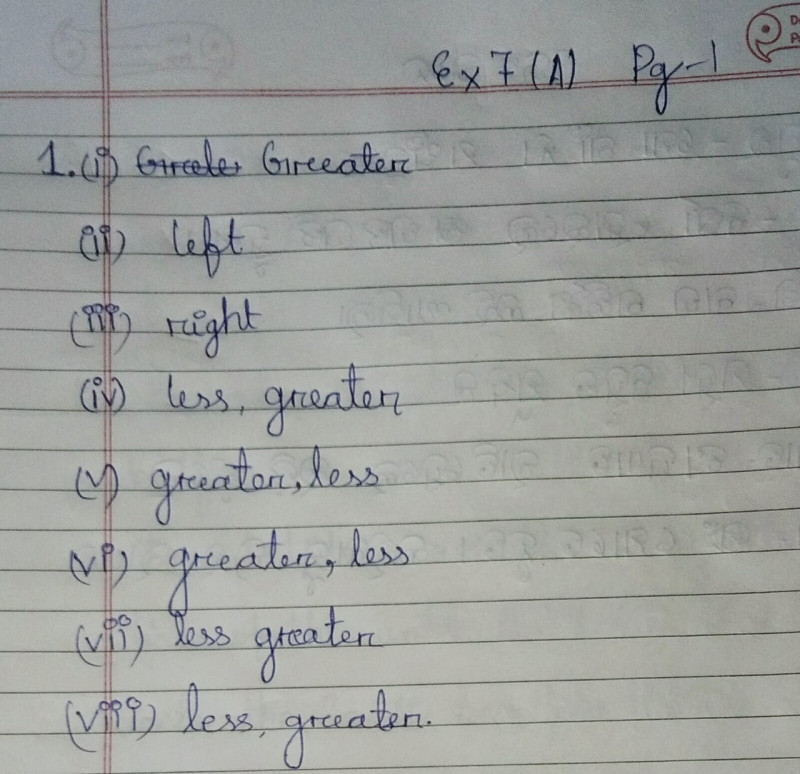 Ex 7 (A) Pg-1
1. (i) Greater
(ii) left
(iii) right
(iv) less, greater
(v) greater, less
(vi) greater, less
(vii) less greater
(viii) less, greater.